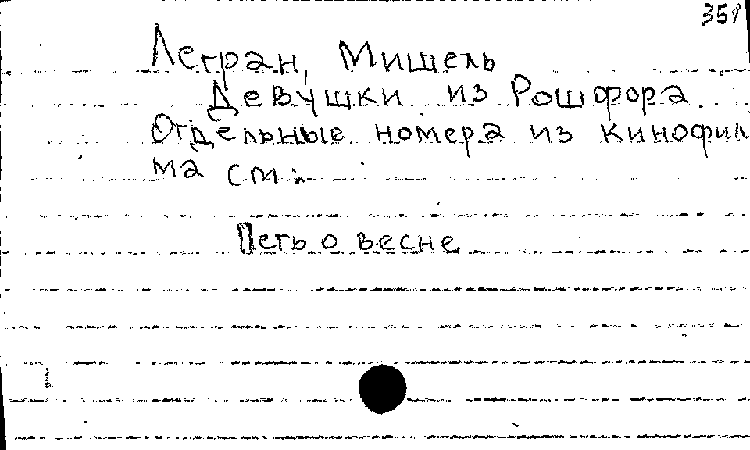 351
Легран, Мишель
Девушки из Рошфора
Отдельные номера из кинофил
ма см:
Петь о весне